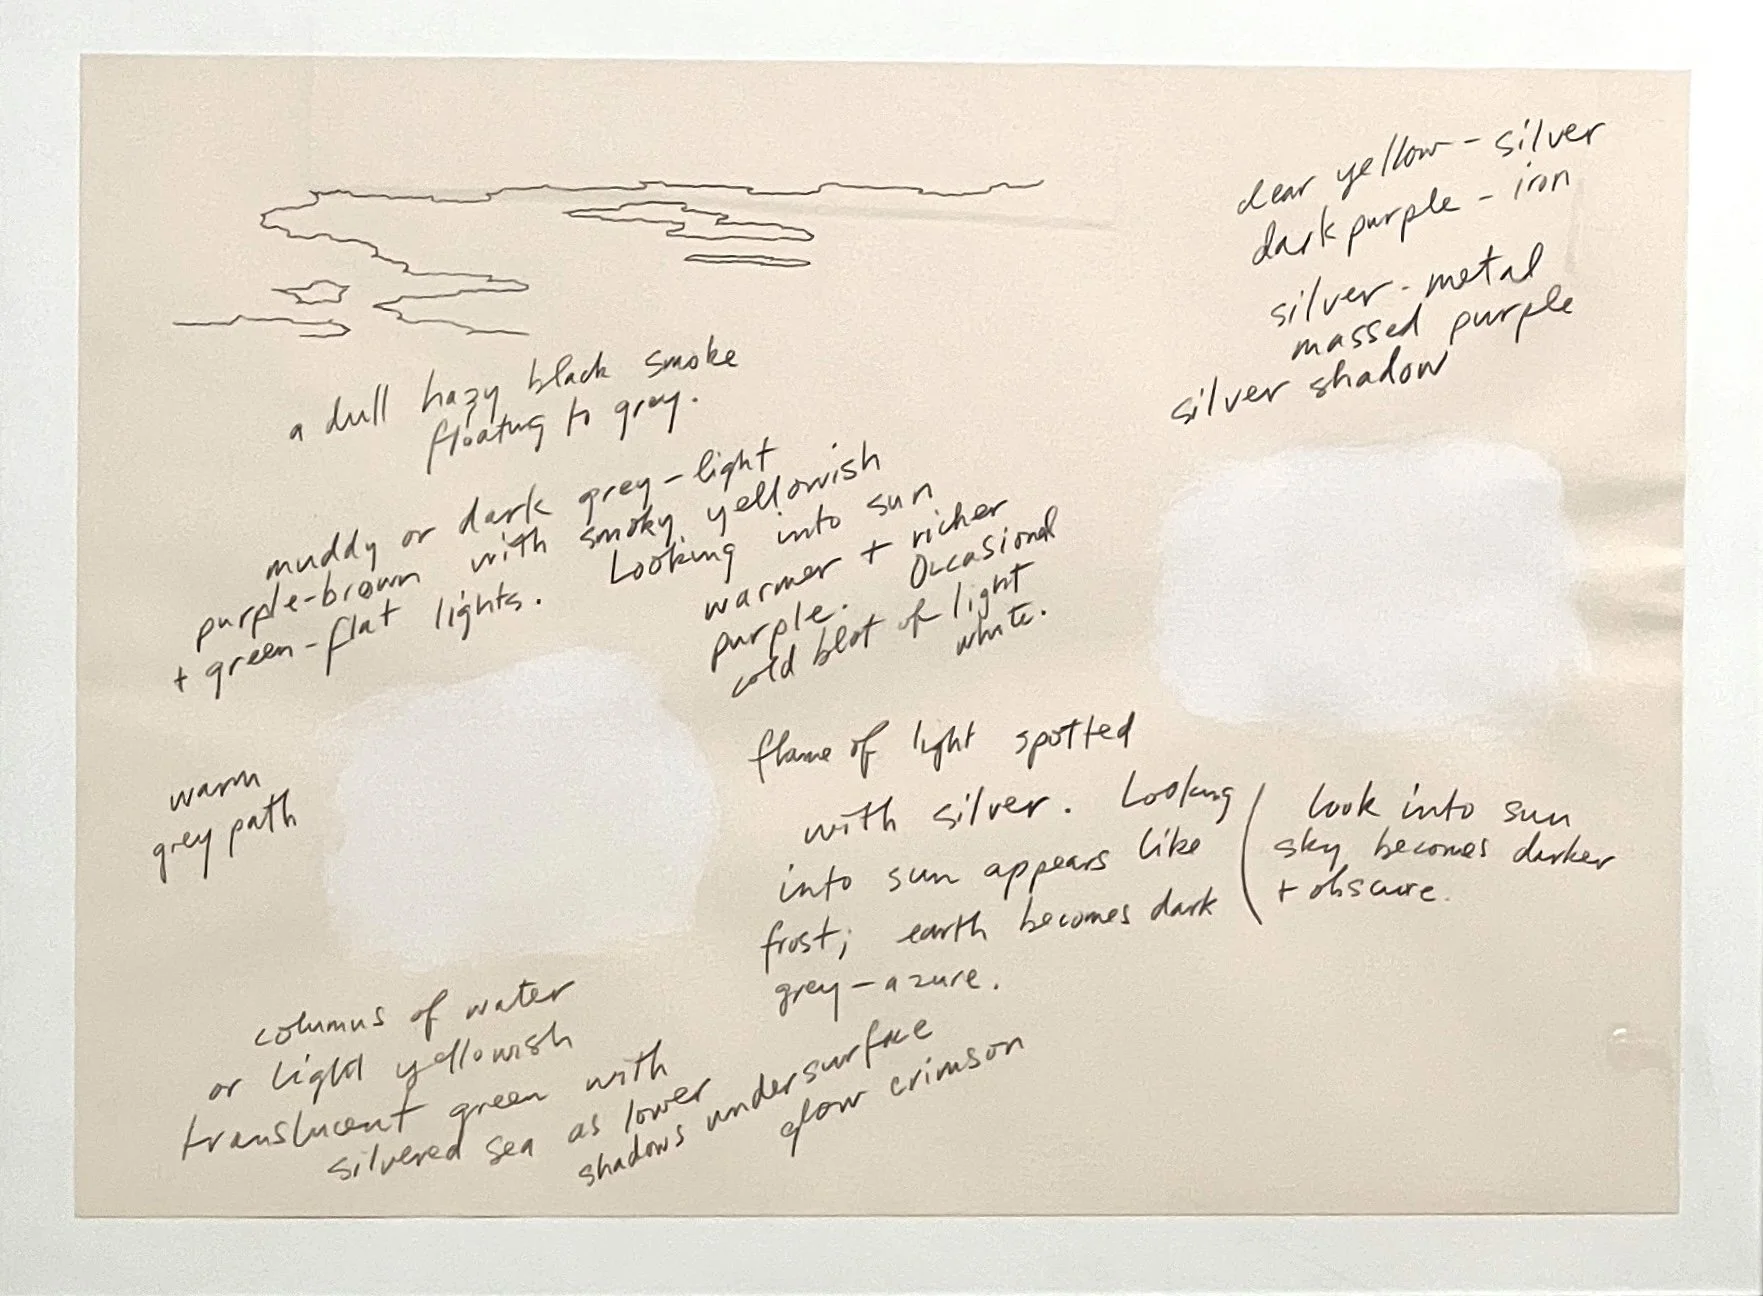 clear yellow - silver
dark purple - iron
silver - metal
massed purple
silver shadow
a dull hazy black smoke
floating to grey.
muddy or dark grey-light
purple-brown with smoky yellowish
+ green-flat lights. Looking into sun
warmer + richer
purple. Occasional
cold blot of light
white.
warm
grey path
flame of light spotted
with silver. Looking
into sun appears like
frost; earth becomes dark
grey-azure.
look into sun
sky becomes darker
+ obscure.
columns of water
or light yellowish
translucent green with
silvered sea as lower
shadows undersurface
glow crimson